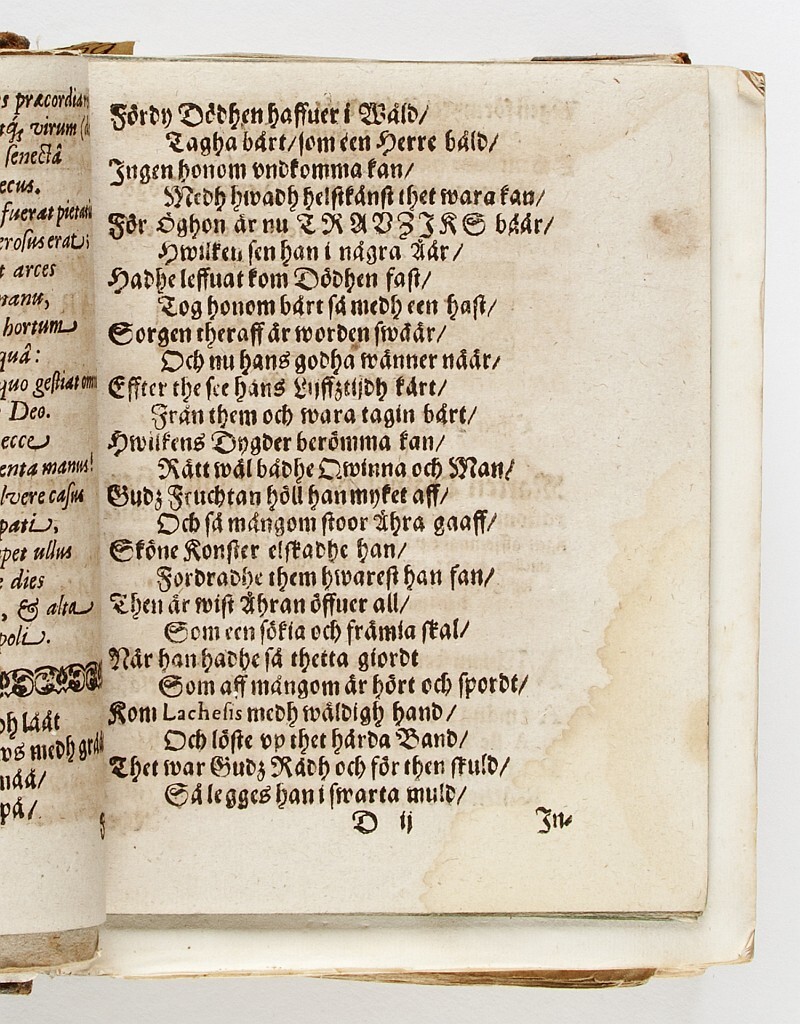 s præcordia
virum
senectâ
ecus.
fuerat pietati
erosus erat;
t arces
manu,
hortum
quâ:
quo gestiat omn
Deo.
ecce
enta manus!
lvere casus
pati,
pet ullus
e dies
, & alta
poli.
dh lååt
ws medh grå
nåå/
på/
Fördy Dödhen haffuer i Wåld/
Tagha bårt/som een Herre båld/
Ingen honom vndkomma kan/
Medh hwadh helst kånst thet wara kan/
För Öghon är nu TRAVZIKS båår/
Hwilken sen han i några Åår/
Hadhe leffuat kom Dödhen fast/
Tog honom bårt så medh een hast/
Sorgen theraff är worden swåår/
Och nu hans godha wänner näär/
Effter the see hans Lijffztijdh kårt/
Från them och wara tagin bårt/
Hwilkens Dygder berömma kan/
Rätt wäl bådhe Qwinna och Man/
Gudz Fruchtan höll han myket aff/
Och så mångom stoor Ähra gaaff/
Sköne Konster elskadhe han/
Fordradhe them hwarest han fan/
Then är wist Ähran öffuer all/
Som een sökia och främia skal/
När han hadhe så thetta giordt
Som aff mångom är hört och spordt/
Kom Lachesis medh wäldigh hand/
Och löste vp thet hårda Band/
Thet war Gudz Rådh och för then skuld/
Så legges han i swarta muld/
D ij In-